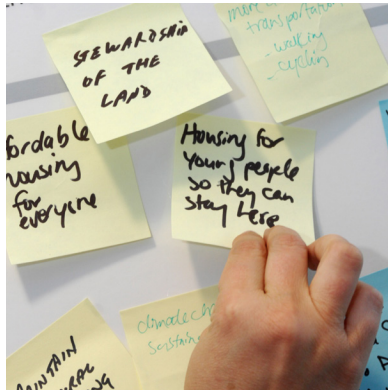 STEWARDSHIP
OF THE
LAND
transportation
- walking
- cycling
fordable
housing
for
everyone
Housing for
young people
so they can
stay here
climate cha
sustain